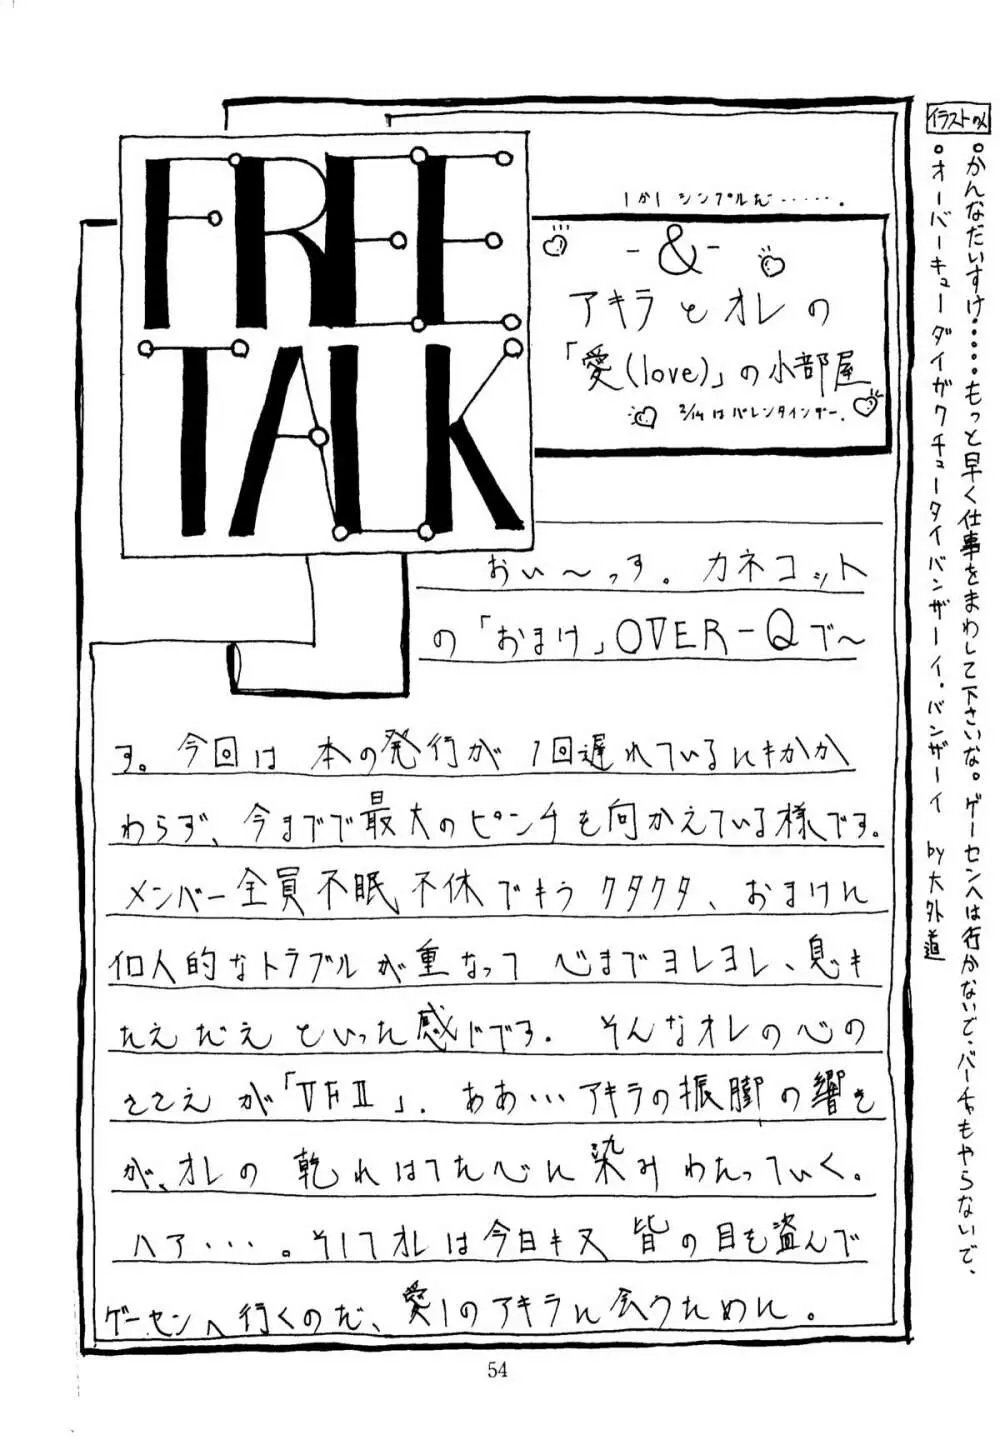 FREE
TALK
しかしシンプルだ・・・・・。
-&-
アキラとオレの
「愛(love)」の小部屋
2/14はバレンタインデー。
おぃ〜っす。カネコット
の「おまけ」OVER-Qで〜
す。今回は本の発行が1回遅れているにもかか
わらず、今までで最大のピンチを向かえている様です。
メンバー全員不眠不休でもうクタクタ、おまけに
個人的なトラブルが重なって心までヨレヨレ、息も
たえだえといった感じです。そんなオレの心の
ささえが「VFII」。ああ・・・アキラの振脚の響き
が、オレの乾れはてた心に染みわたっていく。
ハア・・・。そしてオレは今日も又皆の目を盗んで
ゲーセンへ行くのだ、愛しのアキラに会うために。
イラストの人
・かんなだいすけ・・・・・もっと早く仕事をまわして下さいな。ゲーセンへは行かないで、バーチャもやらないで、
・オーバーキューダイガクチュータイバンザーイ・バンザーイ by大外道
54